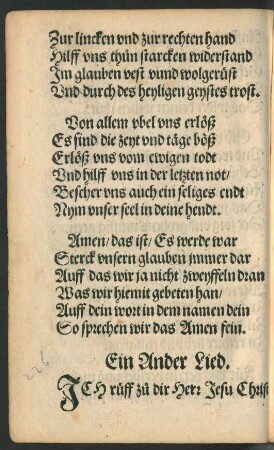 Zur lincken vnd zur rechten hand
Hilff vns thůn starcken widerstand
Im glauben vest vnnd wolgerüst
Vnd durch des heyligen geystes trost.
Von allem vbel vns erlöß
Es sind die zeyt vnd täge böß
Erlöß vns vom ewigen todt
Vnd hilff vns in der letzten not/
Bescher vns auch ein seliges endt
Nym vnser seel in deine hendt.
Amen/ das ist/ Es werde war
Sterck vnsern glauben jmmer dar
Auff das wir ja nicht zweyffeln dran
Was wir hiemit gebeten han/
Auff dein wort in dem namen dein
So sprechen wir das Amen fein.
Ein Ander Lied.
ICH rüff zů dir Herr Jesu Christ
226